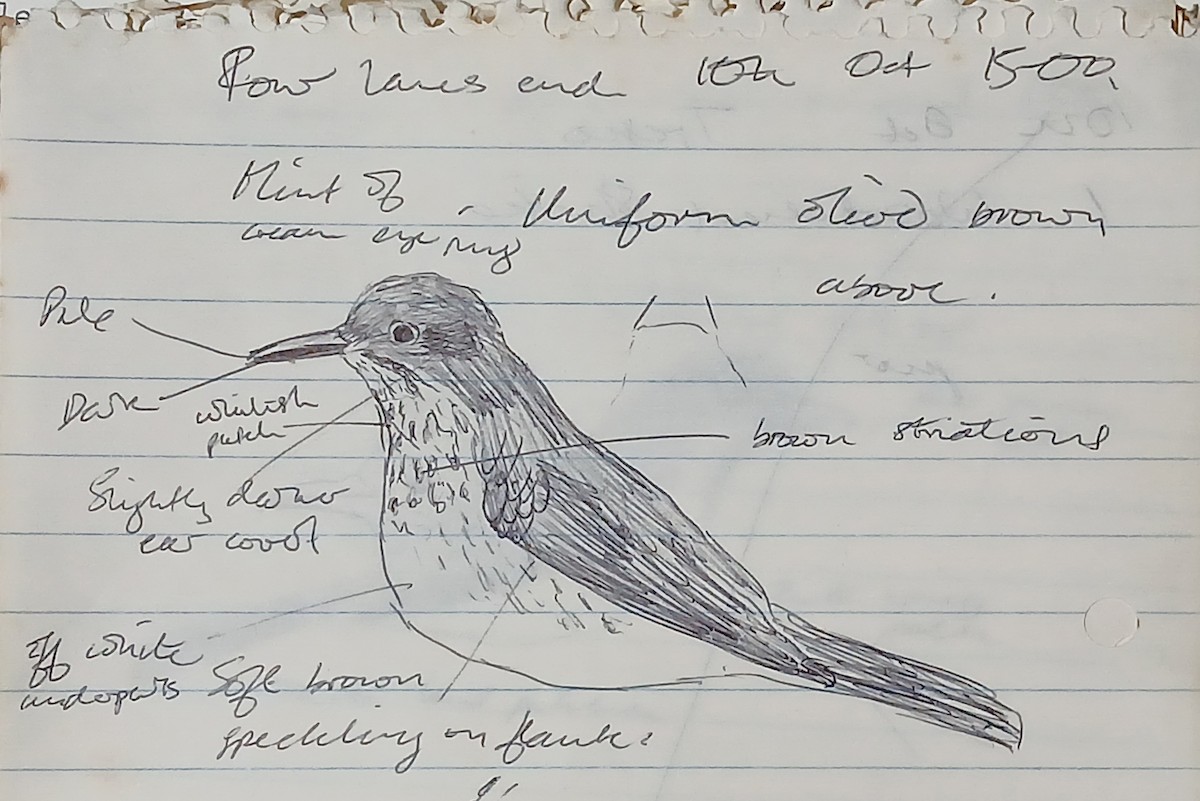 Row lanes end 10th Oct 15-00
Hint of
cream eye ring
Uniform olive brown
above.
Pale
Dark
whitish
patch
brown striations
Slightly darker
ear covot
Off white
underparts
Soft brown
speckling on flanks